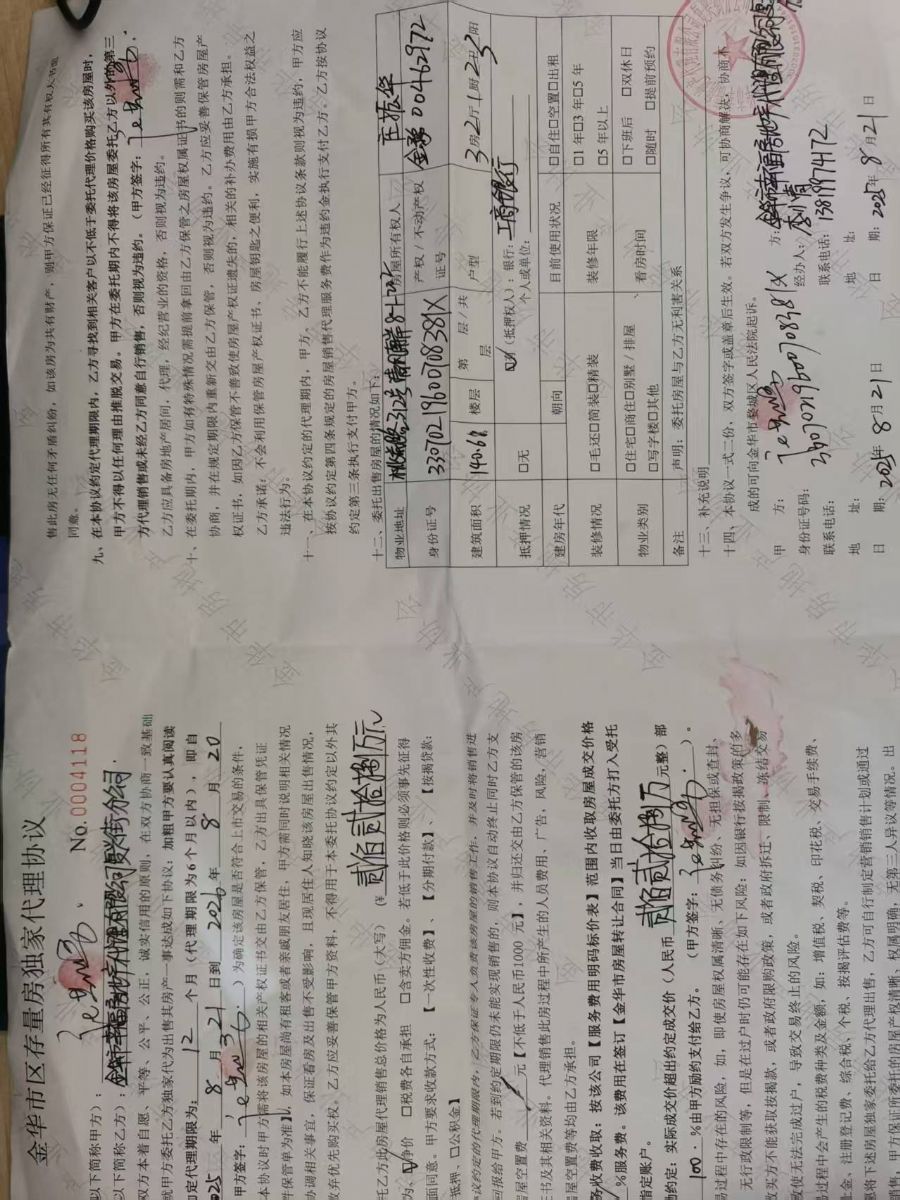 金华市区存量房独家代理协议
No.0004118
以下简称甲方）：
以下简称乙方）：
双方本着自愿、平等、公平、公正，诚实信用的原则，在双方协商一致基础
就甲方委托乙方独家代为出售其房产一事达成如下协议：加粗甲方要认真阅读
定代理期限为：12个月（代理期限为6个月以内），即自
2025年8月21日到2026年8月20
甲方签字：）为确定该房屋是否符合上市交易的条件，
本协议时甲方需将该房屋的相关产权证书交由乙方保管，乙方出具保管凭证
件保管单为准），如本房屋尚有租客或者亲戚朋友居住，甲方需同时说明相关情况
协调相关事宜，保证看房及出售不受影响，且现居住人知晓该房屋出售情况，
放弃优先购买权。乙方应妥善保管甲方资料，不得用于本委托协议约定以外其
托乙方此房屋代理销售总价格为人民币（大写）贰佰贰拾捌万元（¥
为、☑净价 □税费各自承担 □含卖方佣金。若低于此价格则必须事先征得
面同意。甲方要求收款方式：【一次性收费】、【分期付款】、【按揭贷款：
抵押、□公积金】
议约定的代理期限内，乙方保证专人负责该房屋的销售工作，并及时将销售进
回报给甲方。若到约定期限仍未能实现销售的，则本协议自动终止同时乙方支
屋空置费 元【不低于人民币1000元】，并归还交由乙方保管的该房
三书及其相关资料。代理销售此房过程中所产生的人员费用、广告，风险，营销
屋空置费等均由乙方承担。
务费收取：按该公司【服务费用明码标价表】范围内收取房屋成交价格
%服务费。该费用在签订【金华市房屋转让合同】当日由委托方打入受托
指定账户。
约定：实际成交价超出约定成交价（人民币贰佰贰拾捌万元整）部
100.%由甲方励约支付给乙方。（甲方签字：）。
易过程中存在的风险，如，即使房屋权属清晰、无债务纠纷、无担保或查封、
无行政限制等，但是在过户时仍可能存在如下风险：如因银行按揭政策的多
致买方不能获取按揭款，或者政府限购政策，或者政府拆迁、限制、冻结交易
致使无法完成过户，导致交易终止的风险。
过程中会产生的税费种类及金额，如：增值税、契税、印花税、交易手续费、
金、注册登记费、综合税、个税、按揭评估费等。
将下述房屋独家委托给乙方代理出售，乙方可自行制定营销销售计划或通过
销售，甲方保证所委托的房屋产权清晰、权属明确，无第三人异议等情况。出
售此房无任何矛盾纠纷，如该房为共有财产，则甲方保证已经征得所有共有权人书面
同意。
九、在本协议约定代理期限内，乙方寻找到相关客户以不低于委托代理价格购买该房屋时，
甲方不得以任何理由推脱交易。甲方在委托期内不得将该房屋委托乙方以外的第三
方代理销售或未经乙方同意自行销售，否则视为违约。（甲方签字：
乙方应具备房地产居间，代理，经纪营业的资格，否则视为违约。
十、在委托期内，甲方如有特殊情况需提前拿回由乙方保管之房屋权属证书的则需和乙方
协商，并在规定期限内重新交由乙方保管，否则视为违约。乙方应妥善保管房屋产
权证书，如因乙方保管不善致使房屋产权证遗失的，相关的补办费用由乙方承担。
乙方承诺：不会利用保管房屋产权证书、房屋钥匙之便利，实施有损甲方合法权益之
违法行为。
十一、在本协议约定的代理期内，甲方、乙方不能履行上述协议条款则视为违约，甲方应
按协议约定第四条规定的房屋销售代理服务费作为违约金执行支付乙方。乙方按协议
约定第三条执行支付甲方。
十二、委托出售房屋的情况如下：
物业地址 桃源路312号 8-1-202 房屋所有权人
身份证号 33070219600708381X 产权/不动产权证号 00462972
建筑面积 140.69 楼层 第 层/共 层 户型 3房2厅1厨2卫3阳
抵押情况 □无 ☑有（抵押权人）：银行：工商银行
个人或单位：
建房年代 朝向 目前使用状况 □自住□空置□出租
装修情况 □毛还□简装□精装 装修年限 □1年□3年□5年
□5年以上
物业类别 □住宅□商住□别墅/排屋 看房时间 □下班后 □双休日
□写字楼□其他 □随时 □提前预约
备注 声明：委托房屋与乙方无利害关系
十三、补充说明
十四、本协议一式二份，双方签字或盖章后生效。若双方发生争议，可协商解决，协商不
成的可向金华市婺城区人民法院起诉。
甲 方： 方：
身份证号码：33070219600708381X 经办人：
联系电话： 联系电话：13819917472
地 址： 地 址：
日 期：2025年8月21日 日 期：2025年8月21日